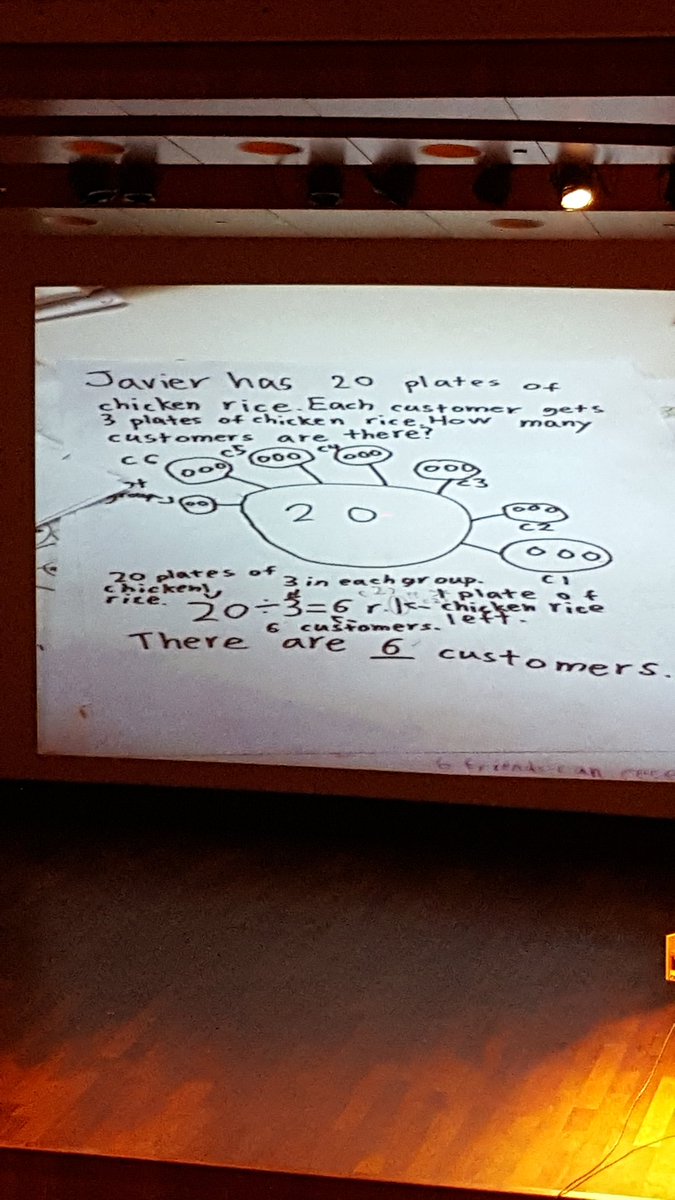 Javier has 20 plates of
chicken rice. Each customer gets
3 plates of chicken rice. How many
customers are there?
C6 C5 C4 C3
20
C2
C1
20 plates of 3 in each group.
chicken plate of
rice. 20÷3=6 r. chicken rice
6 customers. left.
There are 6 customers.
6 friends can